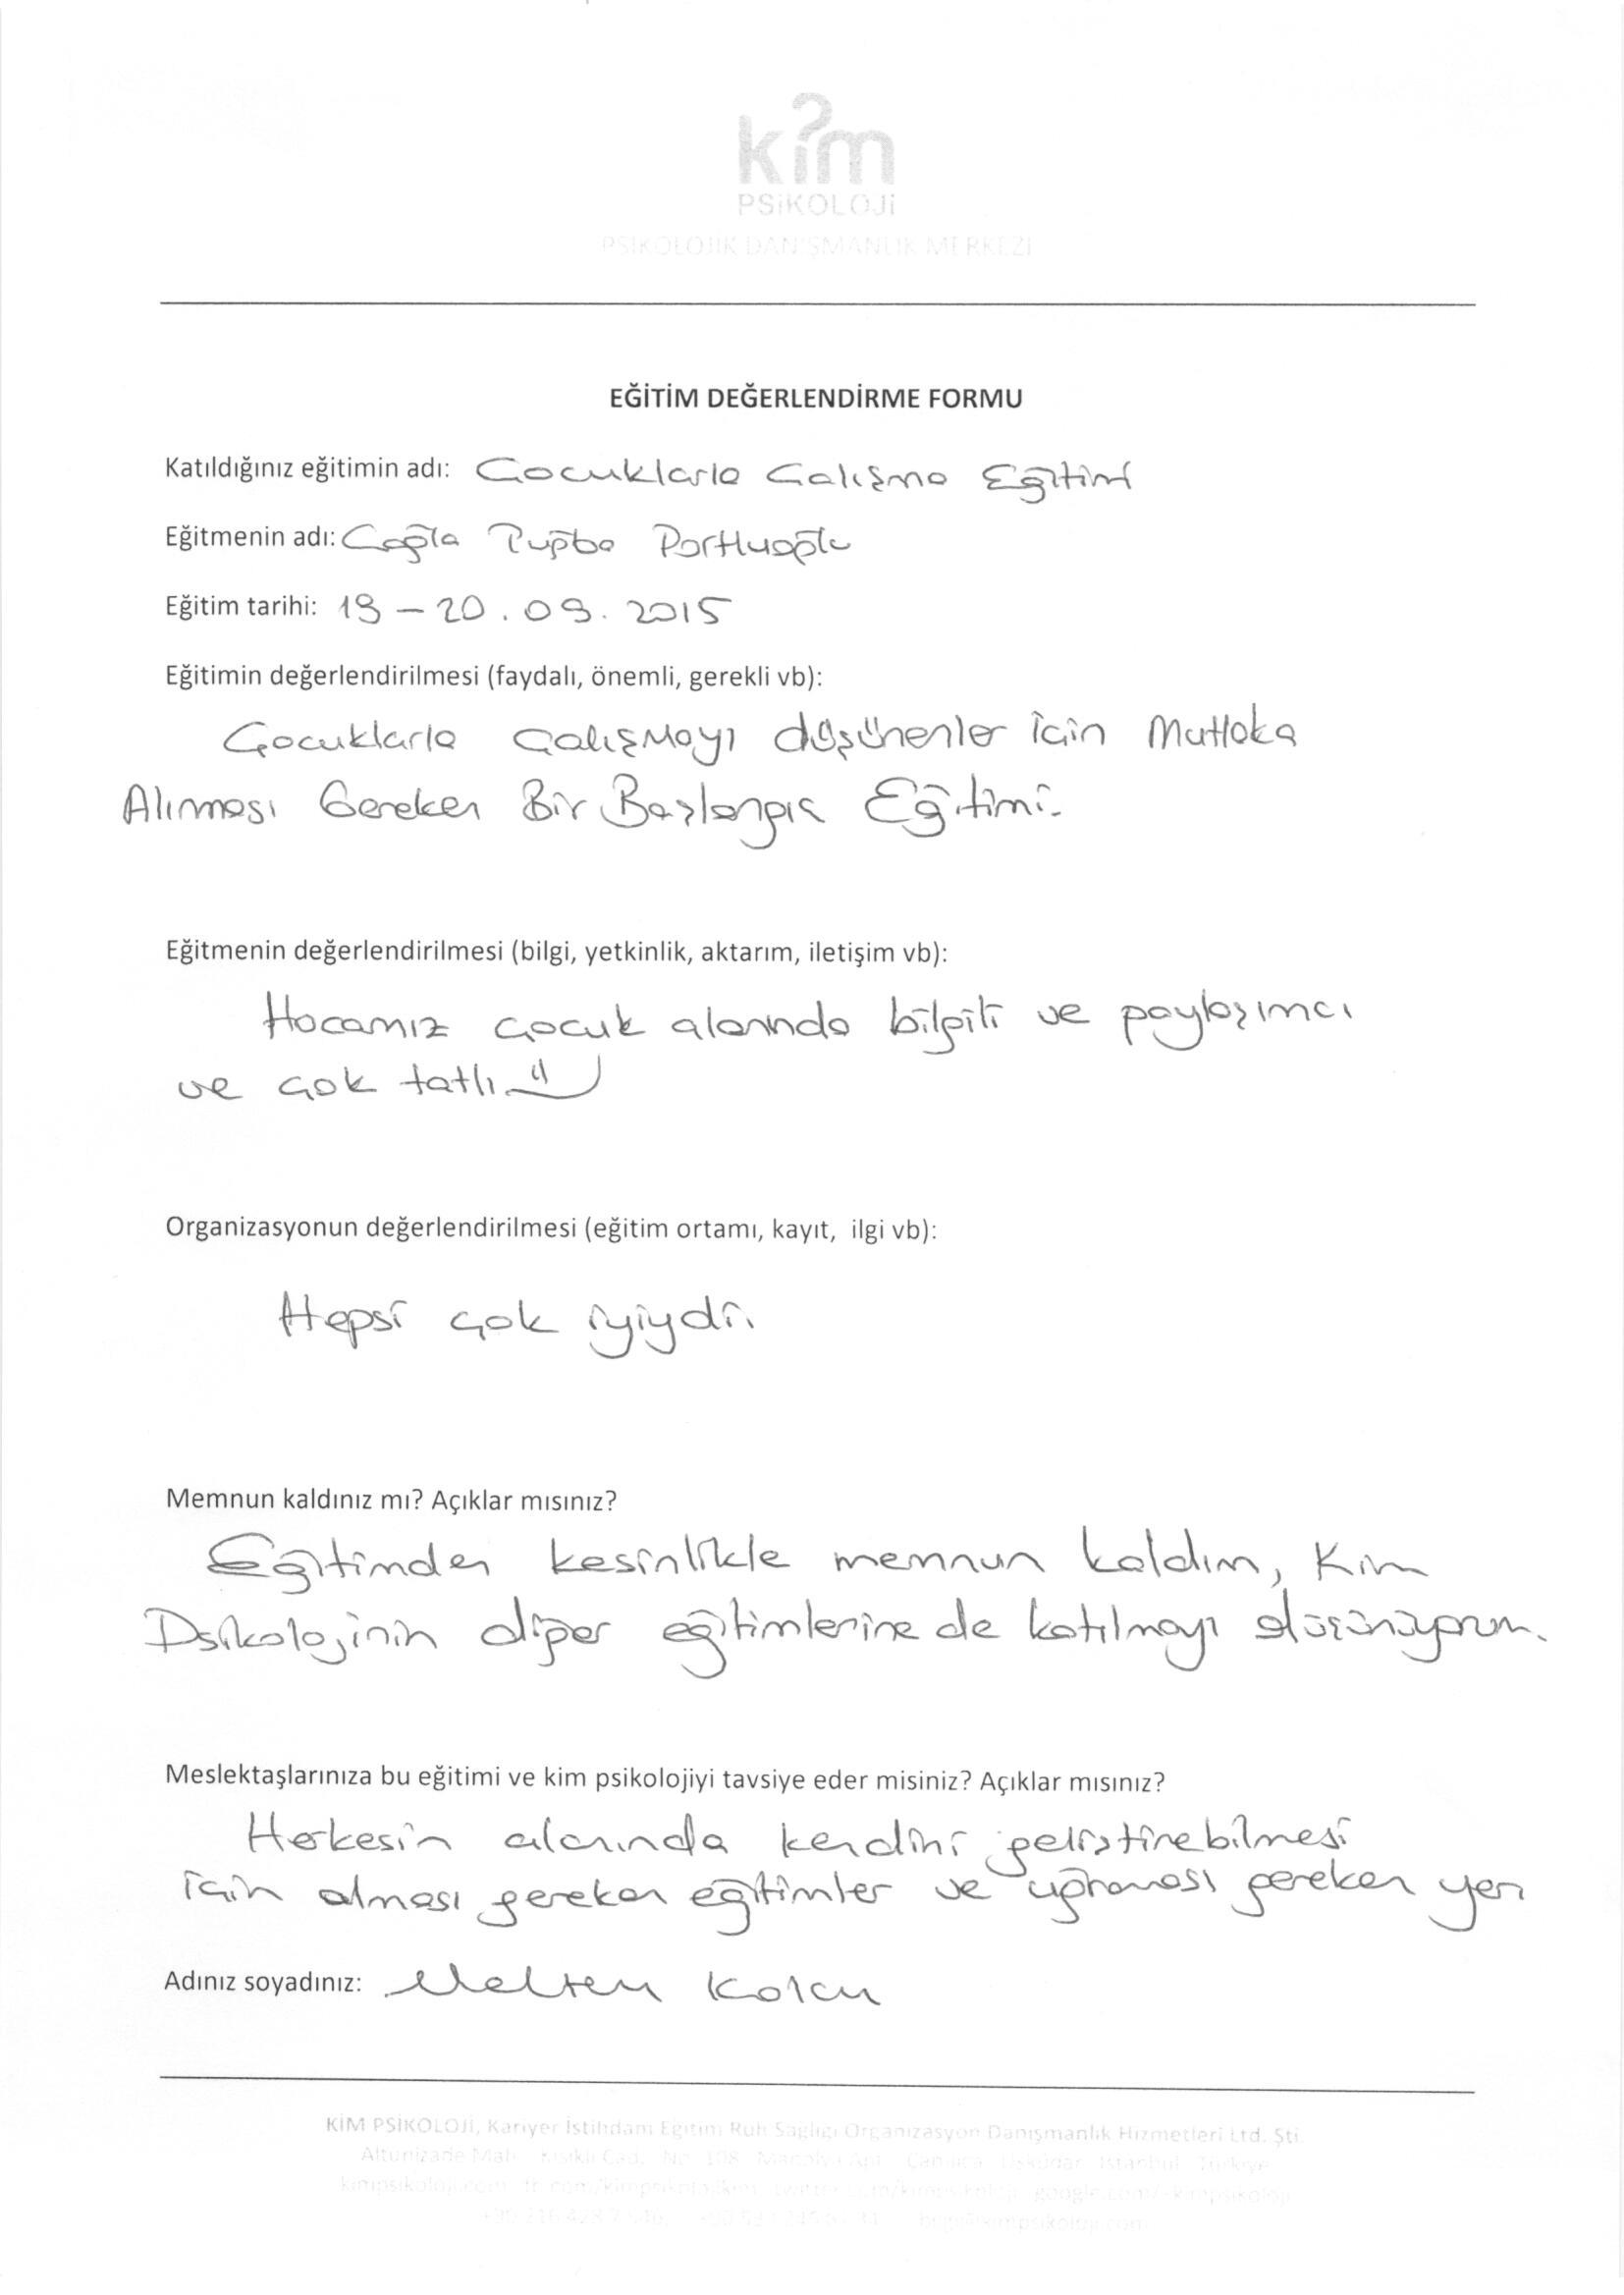 kim
PSiKOLOJi
PSİKOLOJİK DANIŞMANLIK MERKEZİ
EĞİTİM DEĞERLENDİRME FORMU
Katıldığınız eğitimin adı: Çocuklarla Çalışma Eğitimi
Eğitmenin adı: Çağla Tuğba
Eğitim tarihi: 19 – 20 . 09 . 2015
Eğitimin değerlendirilmesi (faydalı, önemli, gerekli vb):
Çocuklarla Çalışmayı düşünenler için Mutlaka
Alınması Gereken Bir Başlangıç Eğitimi.
Eğitmenin değerlendirilmesi (bilgi, yetkinlik, aktarım, iletişim vb):
Hocamız çocuk alanında bilgili ve paylaşımcı
ve çok tatlı :)
Organizasyonun değerlendirilmesi (eğitim ortamı, kayıt, ilgi vb):
Hepsi çok iyiydi.
Memnun kaldınız mı? Açıklar mısınız?
Eğitimden kesinlikle memnun kaldım, Kim
Psikolojinin diğer eğitimlerine de katılmayı düşünüyorum.
Meslektaşlarınıza bu eğitimi ve kim psikolojiyi tavsiye eder misiniz? Açıklar mısınız?
Herkesin alanında kendini geliştirebilmesi
için alması gereken eğitimler ve uğraması gereken yer
Adınız soyadınız: Meltem Kolcu
KİM PSİKOLOJİ, Kariyer İstihdam Eğitim Ruh Sağlığı Organizasyon Danışmanlık Hizmetleri Ltd. Şti
Altunizade Mah. Kısıklı Cad. No: 108 Apt. Çamlıca Üsküdar İstanbul Türkiye